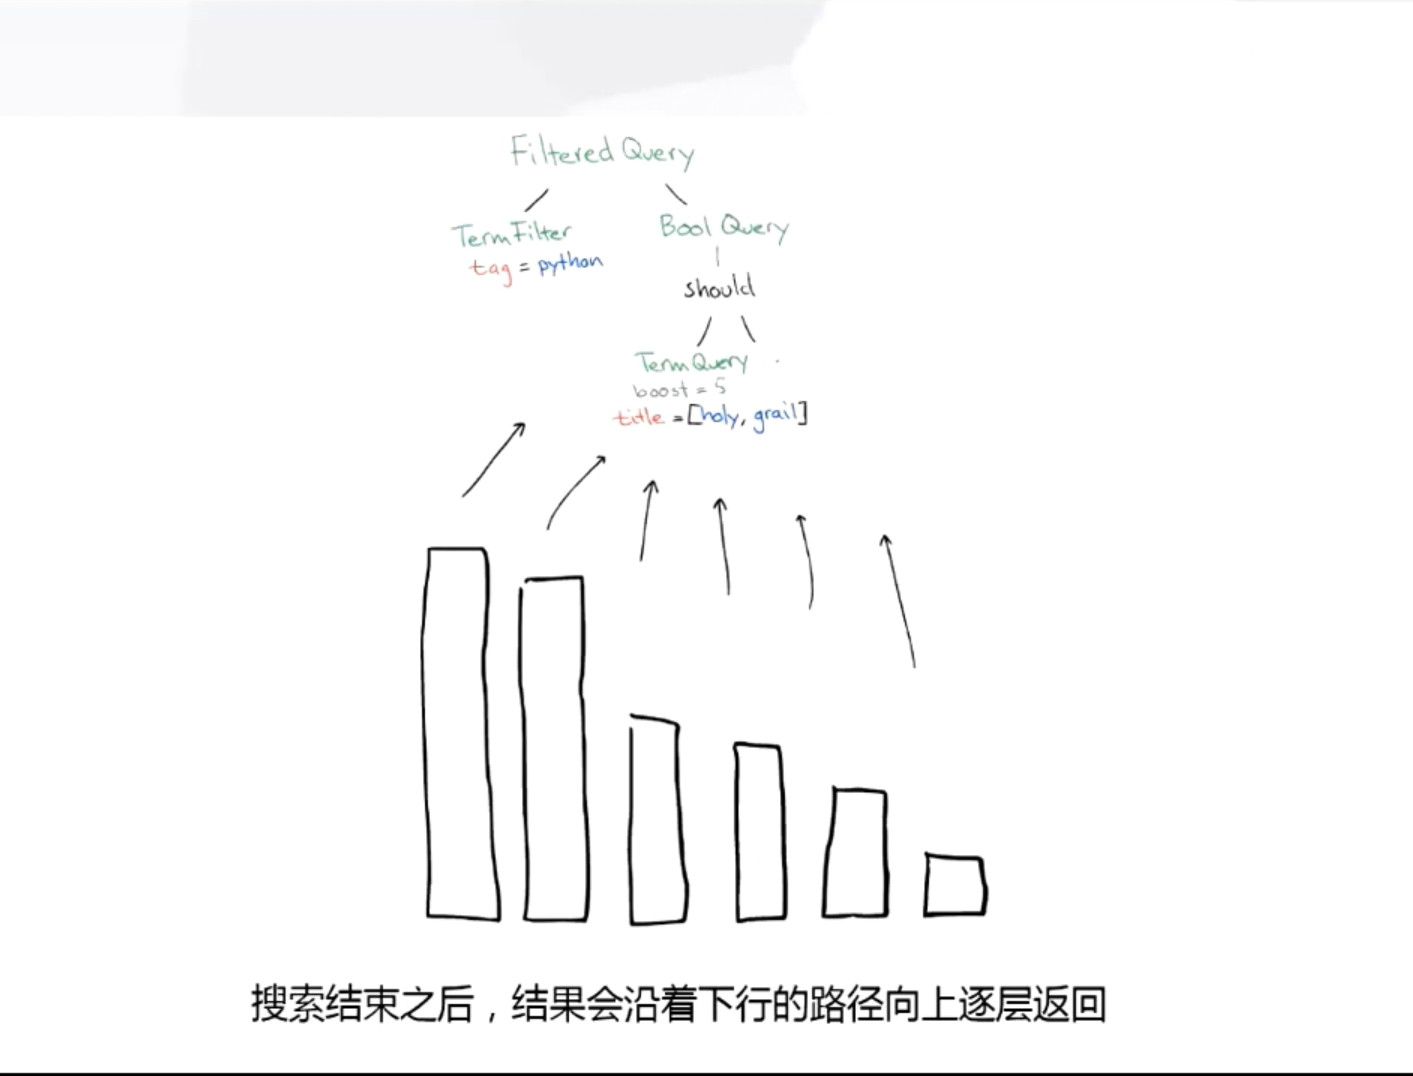 Filtered Query
TermFilter
tag = python
Bool Query
should
TermQuery
boost = 5
title = [holy, grail]
搜索结束之后，结果会沿着下行的路径向上逐层返回